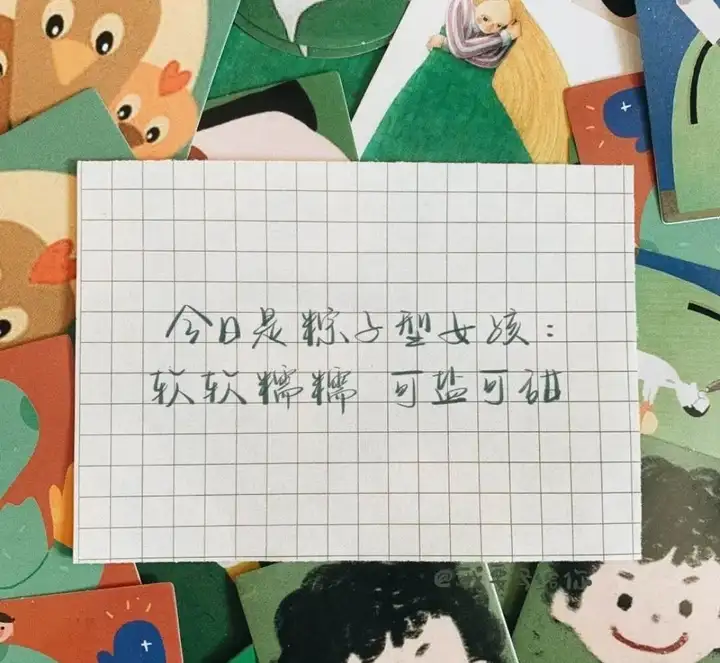 今日是粽子型女孩:
软软糯糯 可盐可甜